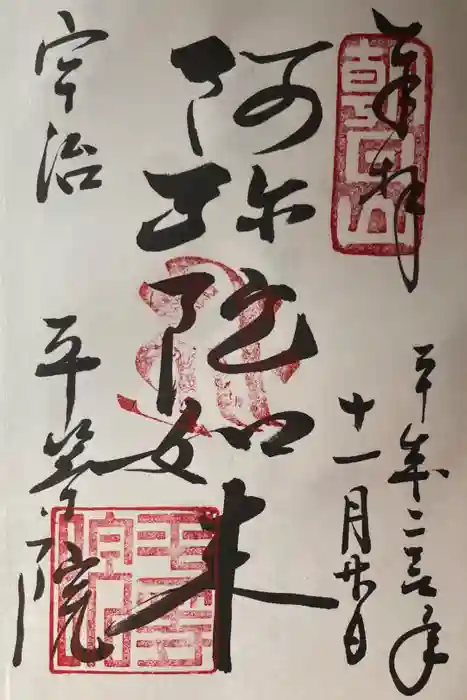 奉拝
朝日山
平成二 年
十一月廿日
阿弥陀如来
宇治
平等院